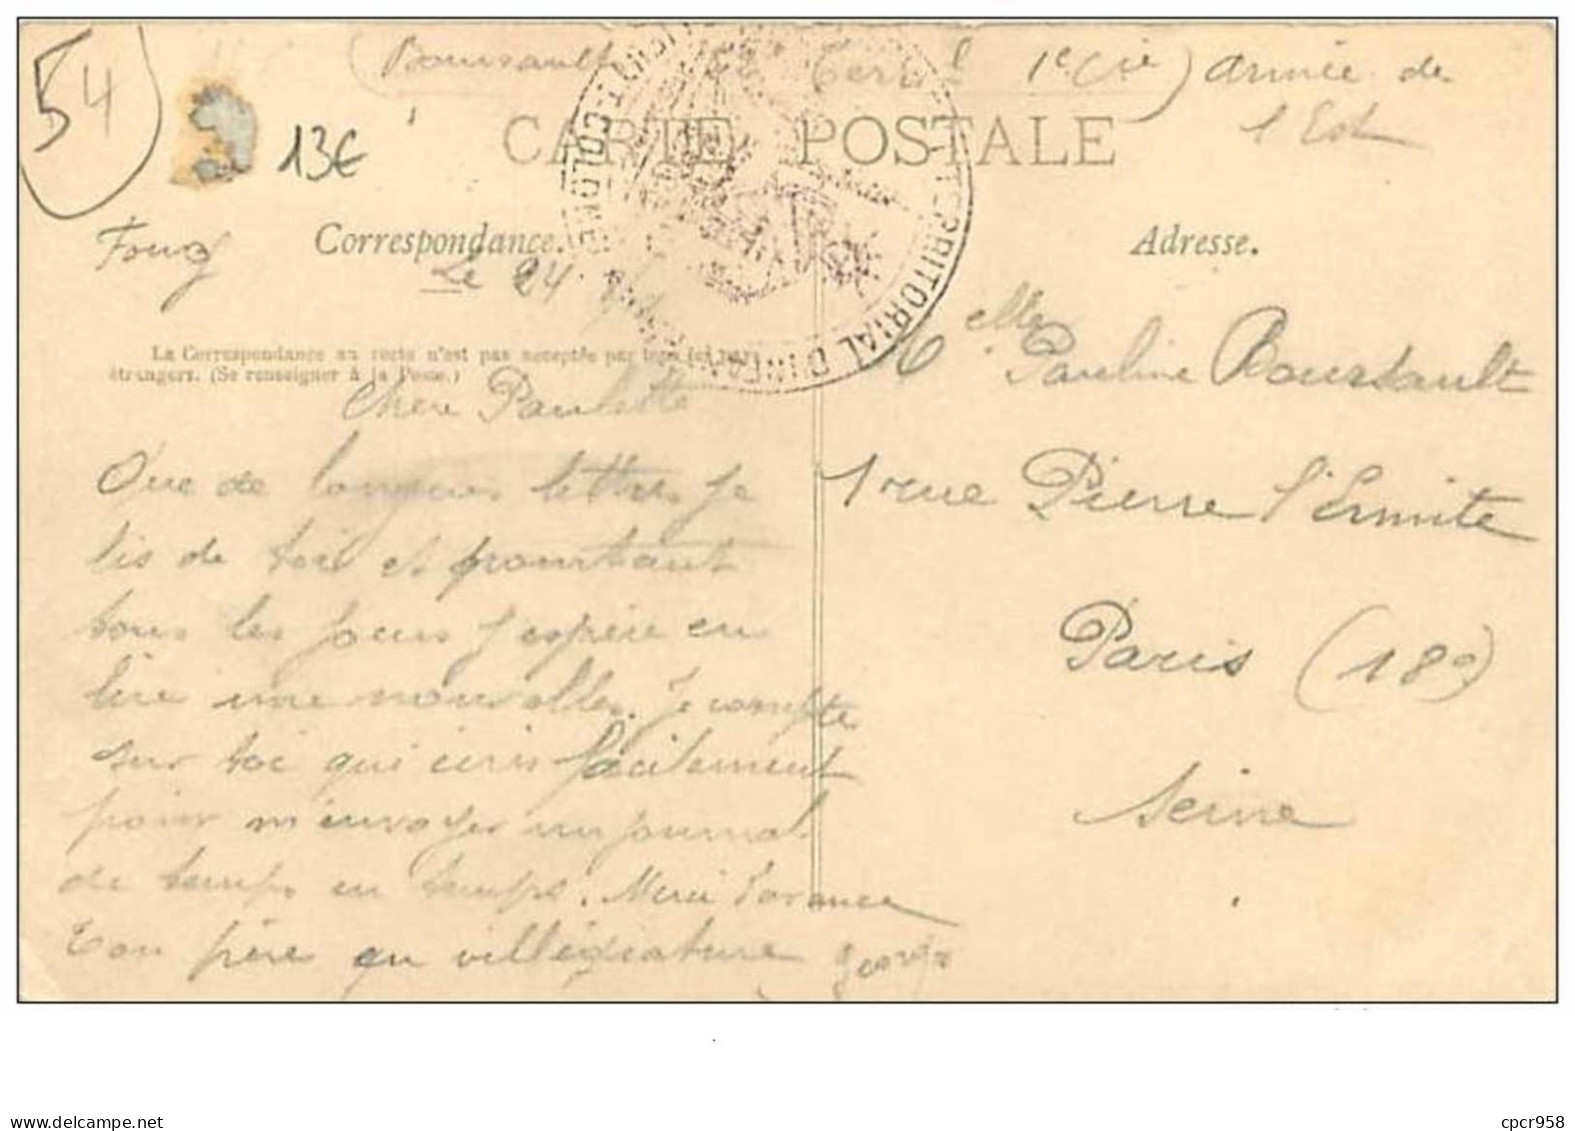 (Boursault Territ 1e Cie) Armée de
l'Est
54
13€
CARTE POSTALE
TERRITORIAL D'INFA
Foug
Correspondance.
Le 24
Adresse.
La Correspondance au recto n'est pas acceptée par tous les pays
étrangers. (Se renseigner à la Poste.)
Melle Pauline Boursault
1 rue Pierre l'Ermite
Paris (18e)
Seine
Chère Paulette
Que de longues lettres je
lis de toi et pourtant
tous les jours j'espère en
lire une nouvelle. Je compte
sur toi qui écris facilement
pour m'envoyer un journal
de temps en temps. Merci d'avance
Ton père en villégiature George
cpcr958